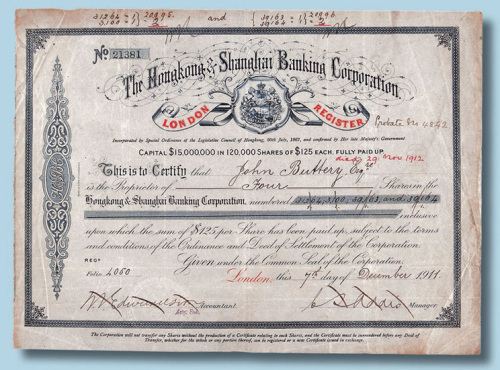 31264 = } { 20895. and 39163 = } { 20896
3,100 = } { 2 39164 = } { 2
No 21381
The Hongkong & Shanghai Banking Corporation.
LONDON REGISTER
Probate No 4842
Incorporated by Special Ordinance of the Legislative Council of Hongkong, 20th July, 1867, and confirmed by Her late Majesty's Government
CAPITAL $15,000,000 IN 120,000 SHARES OF $125 EACH, FULLY PAID UP.
died 29. Nov 1912
This is to Certify that John Buttery Esqre
is the Proprietor of Four Shares in the
Hongkong & Shanghai Banking Corporation, numbered 31264, 3,100, 39163, and 39164
inclusive
upon which the sum of $125 per Share has been paid up, subject to the terms
and conditions of the Ordinance and Deed of Settlement of the Corporation.
REGD Given under the Common Seal of the Corporation.
Folio 4050
London, this 7th day of December 1911.
Accountant. Manager.
The Corporation will not transfer any Shares without the production of a Certificate relating to such Shares, and the Certificate must be surrendered before any Deed of
Transfer, whether for the whole or any portion thereof, can be registered or a new Certificate issued in exchange.